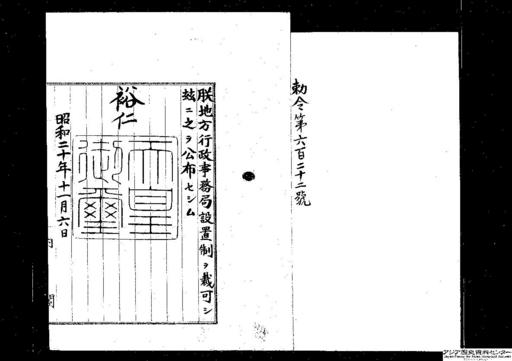 勅令第六百二十二號
朕地方行政事務局設置制ヲ裁可シ
玆ニ之ヲ公布セシム
裕仁
天皇御璽
昭和二十年十一月六日
内閣
アジア歴史資料センター